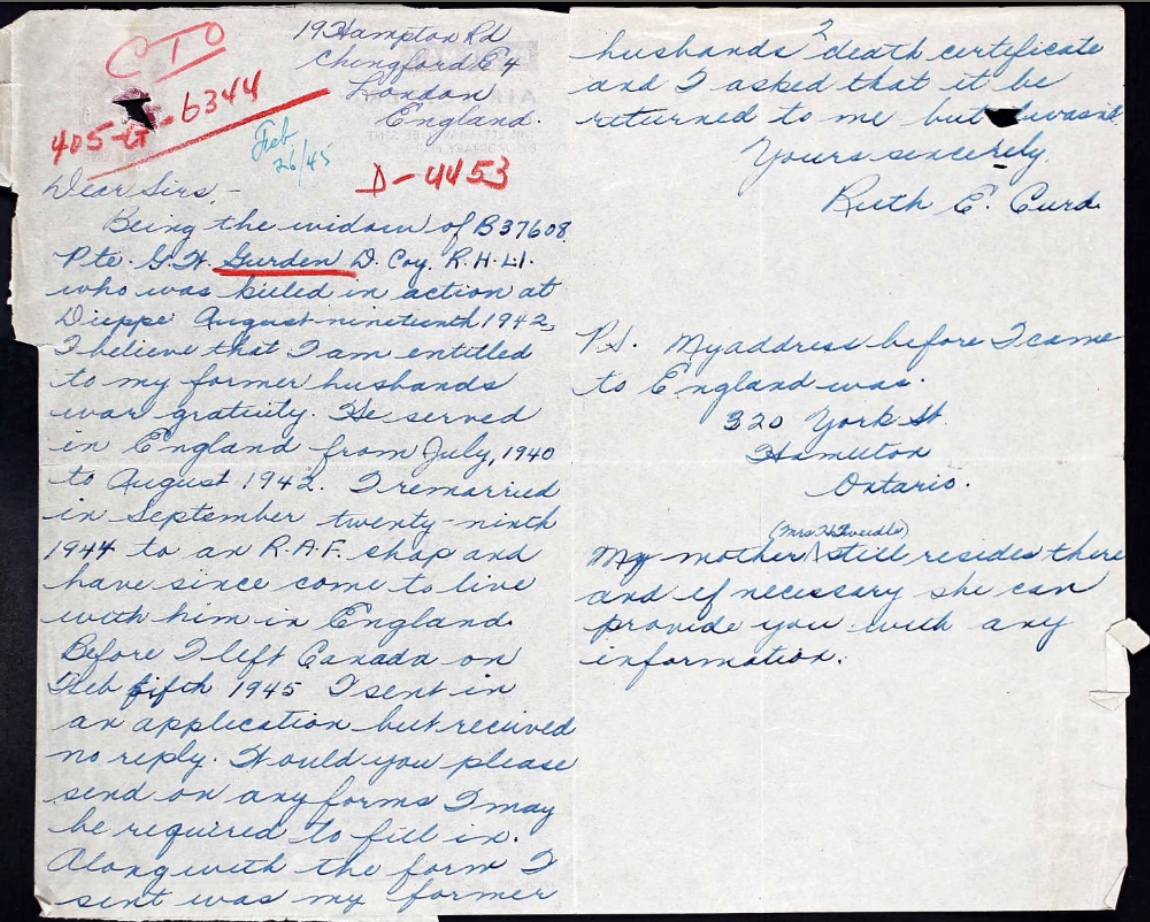 CTO
405-G-6344
19 Hampton Rd
Chingford E4
London
England.
Feb
26/45
D-4453
Dear Sirs,-
Being the widow of B37608
Pte. G.W. Gurden D. Coy. R.H.L.I.
who was killed in action at
Dieppe August nineteenth 1942,
I believe that I am entitled
to my former husbands
war gratuity. He served
in England from July, 1940
to August 1942. I remarried
in September twenty-ninth
1944 to an R.A.F. chap and
have since come to live
with him in England.
Before I left Canada on
Feb fifth 1945 I sent in
an application but received
no reply. Would you please
send on any forms I may
be required to fill in.
Along with the form I
sent was my former
2
husbands death certificate
and I asked that it be
returned to me but it wasn't.
Yours sincerely.
Ruth E. Curd.
P.S. My address before I came
to England was.
320 York St.
Hamilton
Ontario.
(Mrs H Tweedle)
My mother still resides there
and if necessary she can
provide you with any
information.